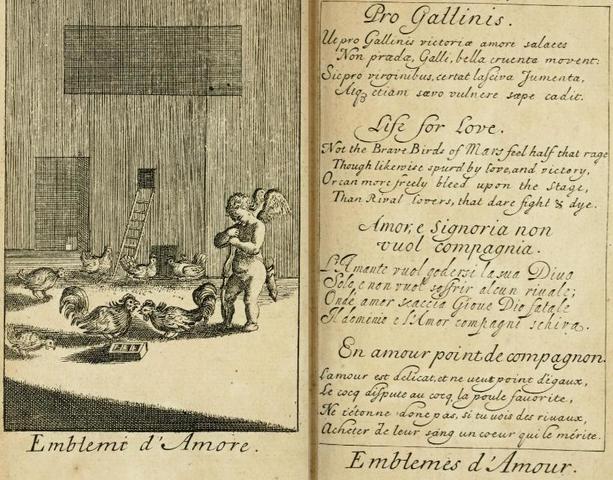 Emblemi d'Amore.
Pro Gallinis.
Ut pro Gallinis victoriæ amore salaces
Non prædæ, Galli, bella cruenta movent:
Sic pro virginibus, certat lasciva Jumenta,
Atq etiam sævo vulnere sæpe cadit.
Life for Love.
Not the Brave Birds of Mars feel half that rage
Though likewise spurd by love, and victory,
Or can more freely bleed upon the Stage,
Than Rival lovers, that dare fight & dye.
Amor, e Signoria non
vuol compagnia.
L'Amante vuol godersi la sua Diva
Solo, e non vuol soffrir alcun rivale;
Onde amor scaccia Giove Dio fatale
Il domenio e l'Amor compagni schiva.
En amour point de compagnon.
L'amour est delicat, et ne veut point d'egaux,
Le cocq dispute au cocq, la poule favorite,
Ne t'etonne donc pas, si tu vois des rivaux,
Acheter de leur sang un coeur qui le mérite.
Emblemes d'Amour.